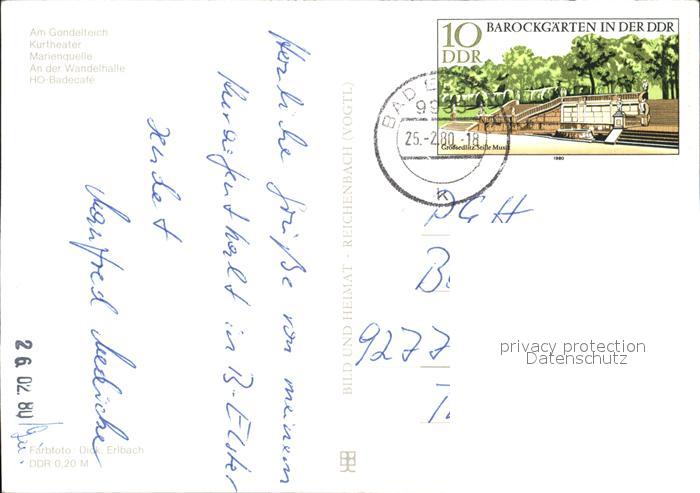 Am Gondelteich
Kurtheater
Marienquelle
An der Wandelhalle
HO-Badecafé
Herzliche Grüße von meinem
Kuraufenthalt in B-Elster
sendet
Manfred
26.02.80
Farbfoto: Dick, Erlbach
DDR 0,20 M
BILD UND HEIMAT · REICHENBACH (VOGTL)
10
DDR
BAROCKGÄRTEN IN DER DDR
Großsedlitz: Stille Musik
1980
BAD E
993
25.-2.80.-18
K
PGH
B
9277
privacy protection
Datenschutz